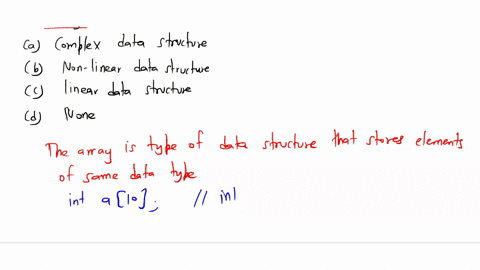 (a) Complex data structure
(b) Non-linear data structure
(c) linear data structure
(d) None
The array is type of data structure that stores elements
of same data type
int a[10]; // int